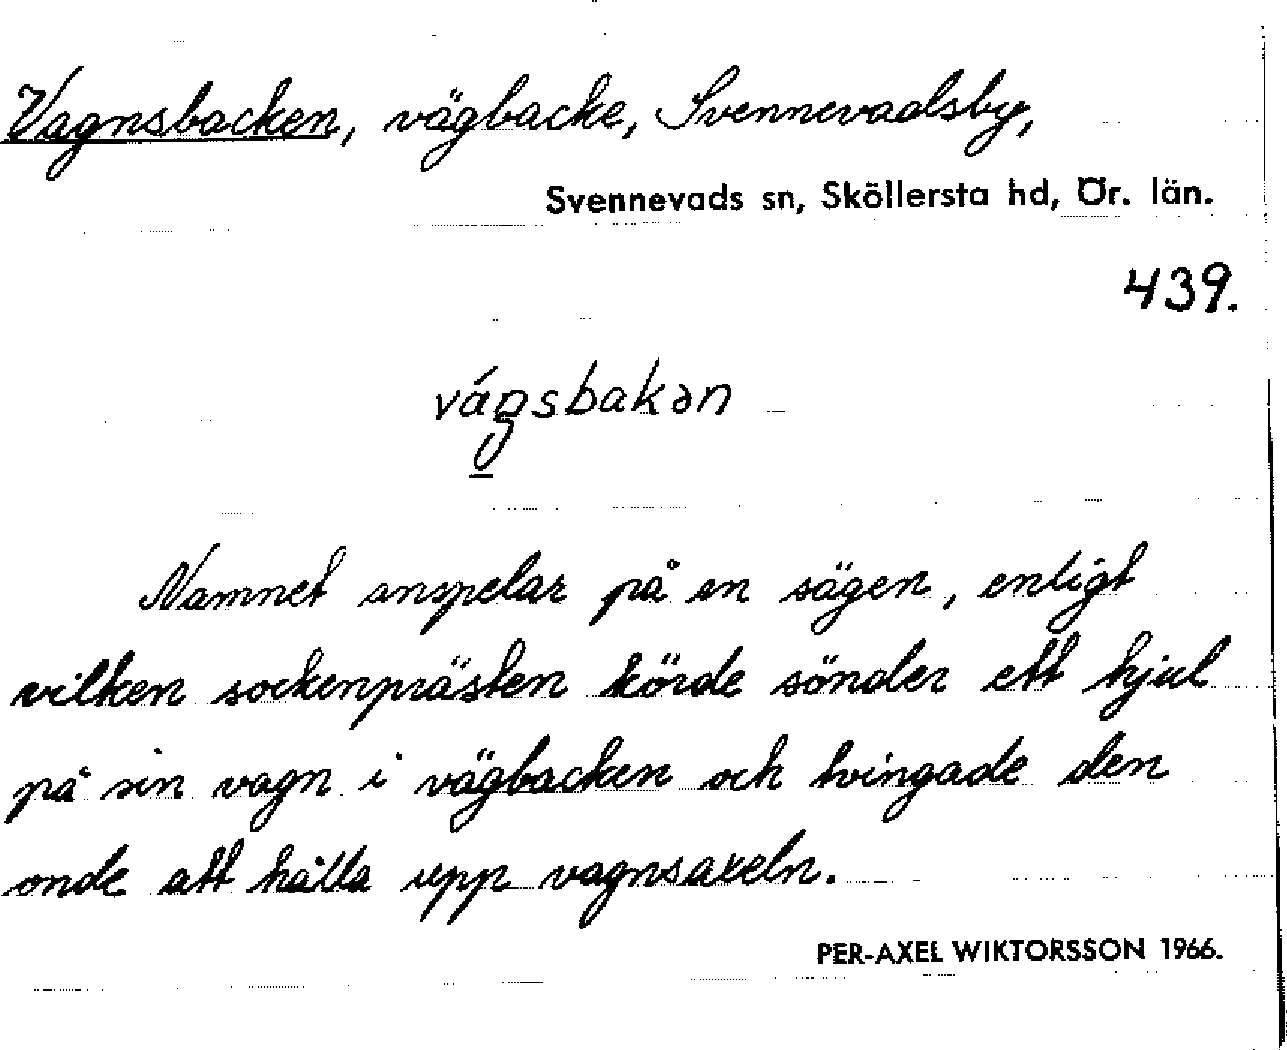 Vagnsbacken, vägbacke, Svennevadsby,
Svennevads sn, Sköllersta hd, Ör. län.
439.
vágsbakən
Namnet anspelar på en sägen, enligt
vilken sockenprästen körde sönder ett hjul
på sin vagn i vägbacken och tvingade den
onde att hålla upp vagnsaxeln.
PER-AXEL WIKTORSSON 1966.